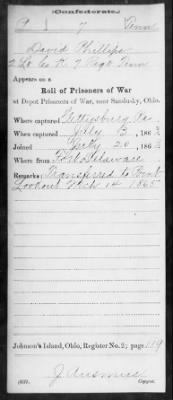 (Confederate.)
P 7 Tenn
David Phillips
2 Lt Co K, 7 Reg't Tenn
Appears on a
Roll of Prisoners of War
at Depot Prisoners of War, near Sandusky, Ohio.
Where captured Gettysburg Pa
When captured July 3, 1863
Joined July 20, 1863
Where from Ft Delaware
Remarks: Transferred to Point
Lookout Mch 14 1865
Johnson's Island, Ohio, Register No. 2; page 119
Copyist.